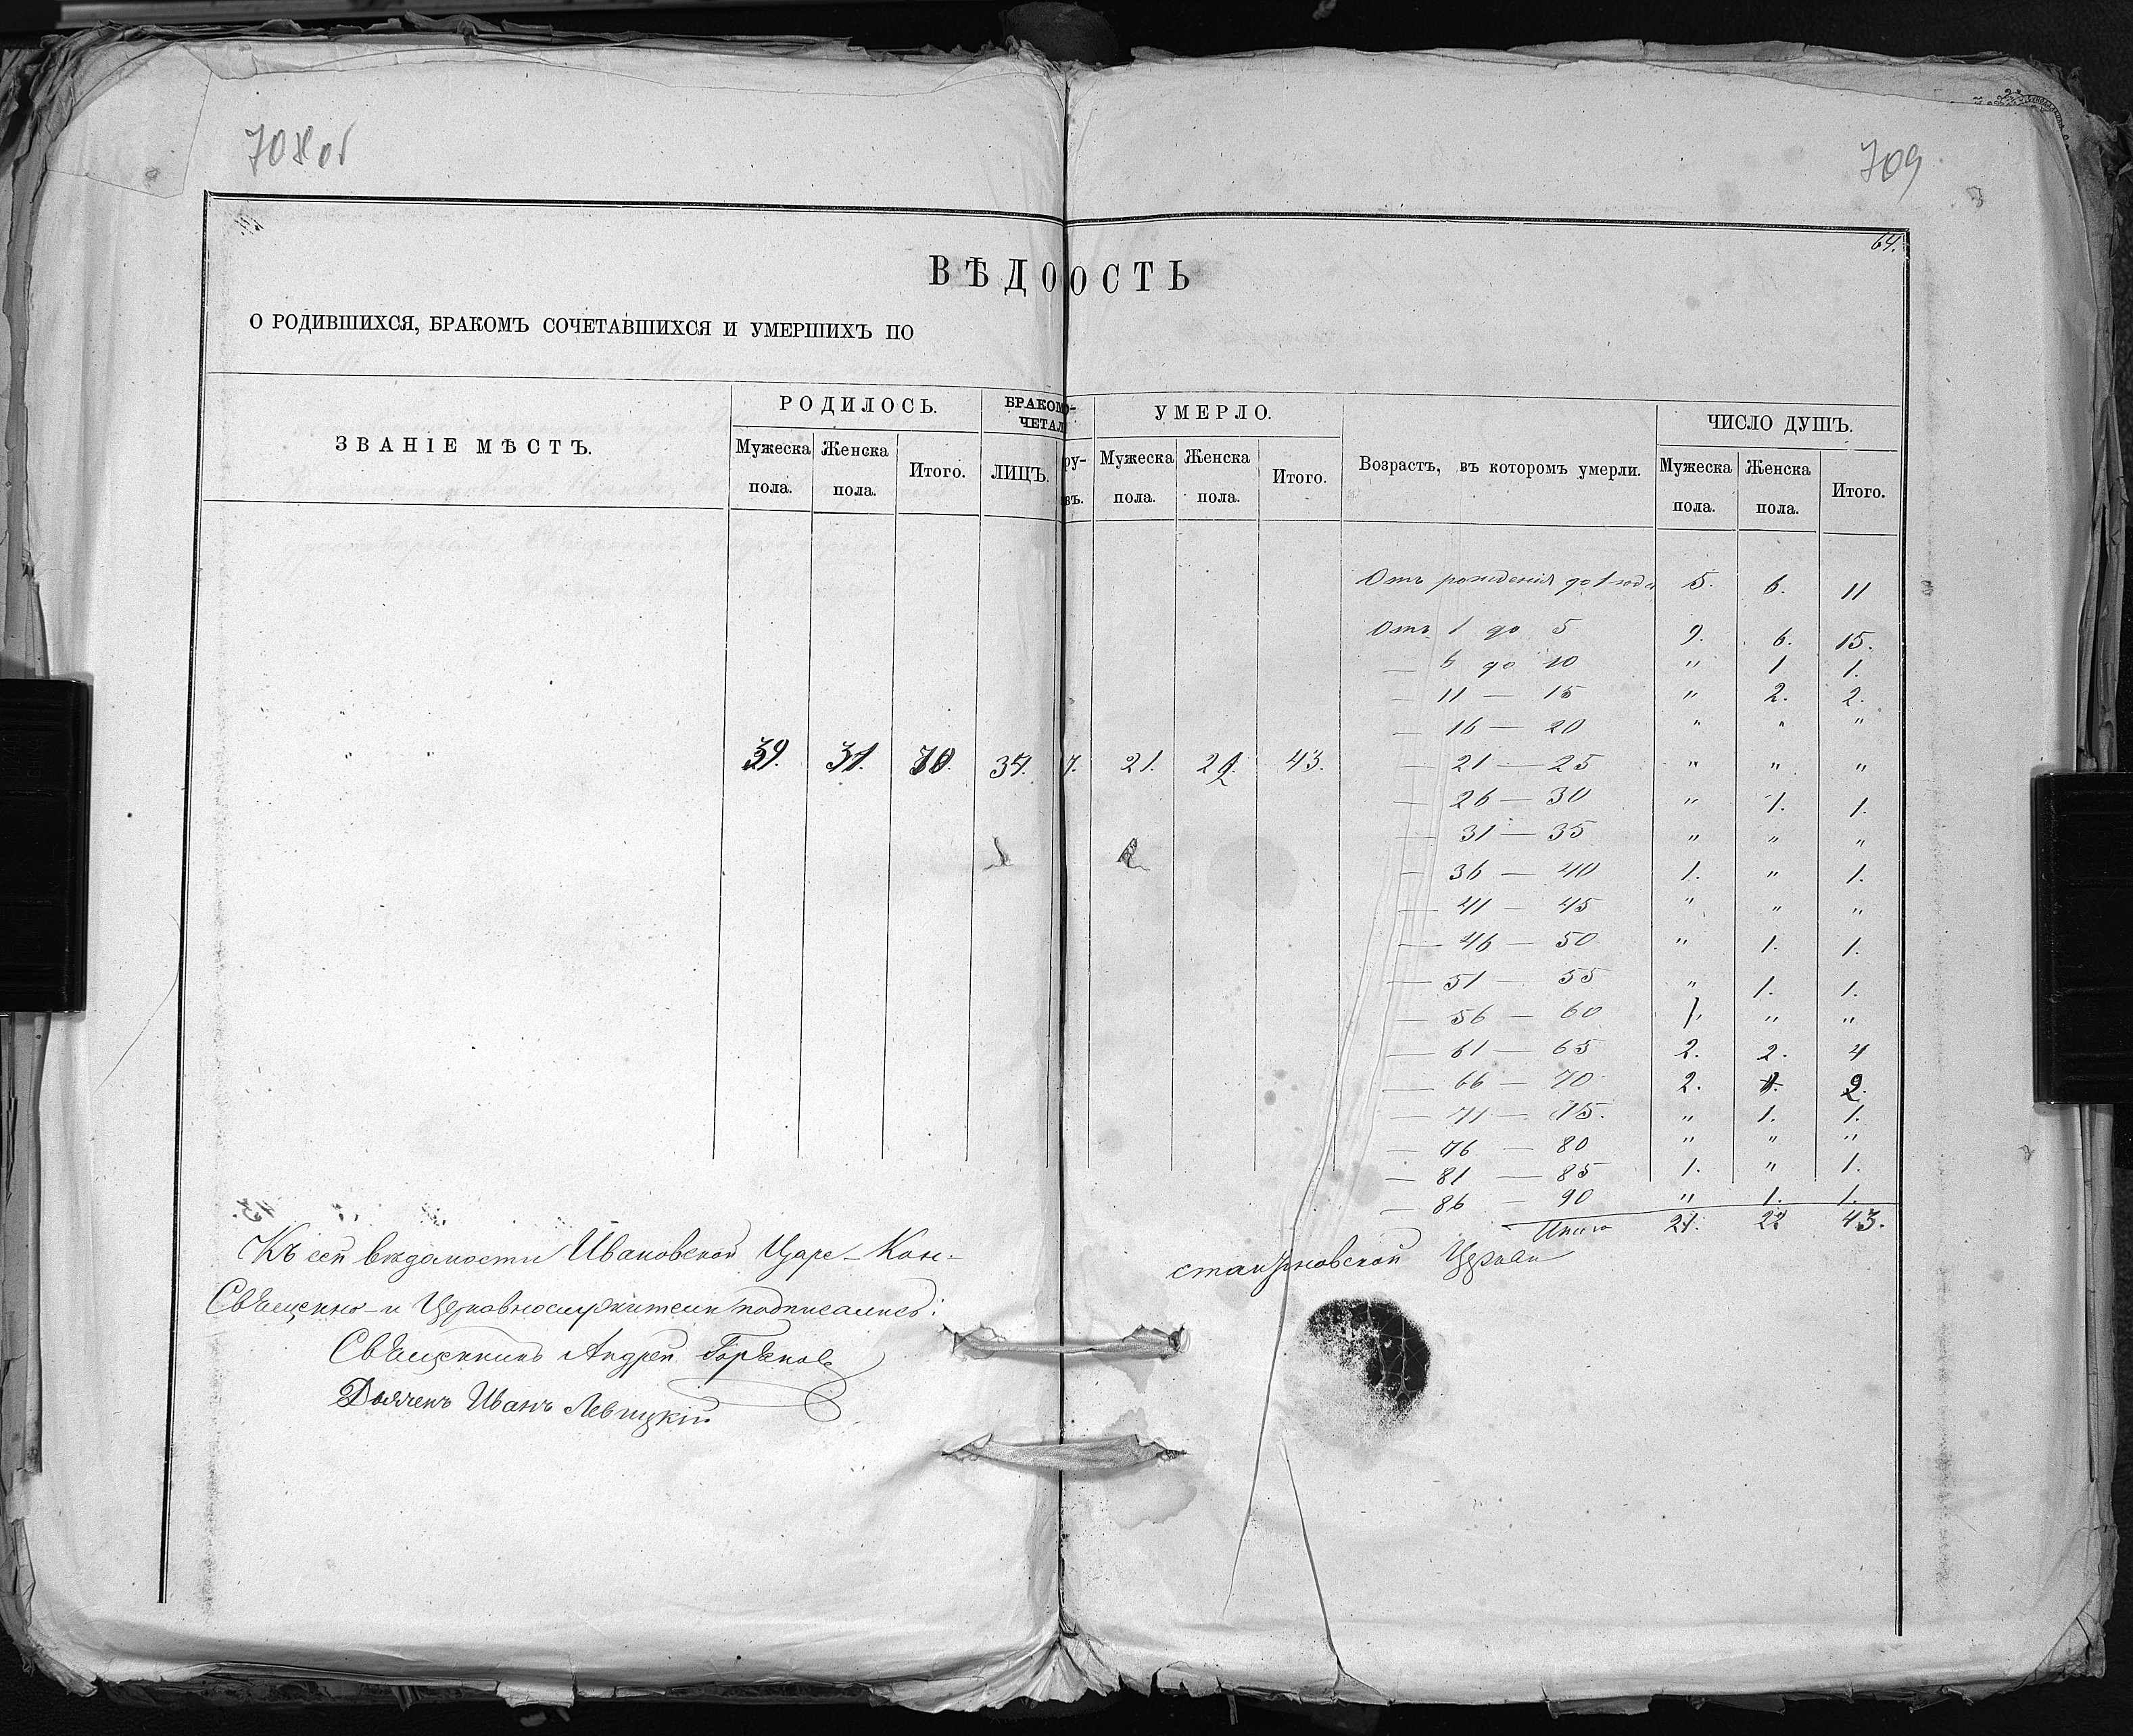 708 об
709
64.
ВѢДО ОСТЬ
О РОДИВШИХСЯ, БРАКОМЪ СОЧЕТАВШИХСЯ И УМЕРШИХЪ ПО
ЗВАНІЕ МѢСТЪ.
РОДИЛОСЬ.
Мужеска пола.
Женска пола.
Итого.
БРАКОМ О-
ЧЕТАЛ
ЛИЦЪ.
ру-
въ.
УМЕРЛО.
Мужеска пола.
Женска пола.
Итого.
Возрастъ, въ которомъ умерли.
ЧИСЛО ДУШЪ.
Мужеска пола.
Женска пола.
Итого.
" " 39. 31. 70. 37. 7. 21. 22. 43.
Отъ рожденія до 1 года 5. 6. 11
Отъ 1 до 5 9. 6. 15.
— 6 до 10 " 1 1.
— 11 — 15 " 2. 2.
— 16 — 20 " " "
— 21 — 25 " " "
— 26 — 30 " 1. 1.
— 31 — 35 " " "
— 36 — 40 1. " 1.
— 41 — 45 " " "
— 46 — 50 " 1. 1.
— 51 — 55 " 1. 1.
— 56 — 60 1. " "
— 61 — 65 2. 2. 4
— 66 — 70 2. 2.
— 71 — 75. " 1. 1.
— 76 — 80 " " "
— 81 — 85 1. " 1.
— 86 — 90 " 1. 1.
Итого 21. 22 43.
Къ сей вѣдомости Ивановской Царе-Кон-
стантиновской Церкви
Священно-и Церковнослужители подписались:
Священникъ Андрей
Дьячекъ Иванъ Левицкій